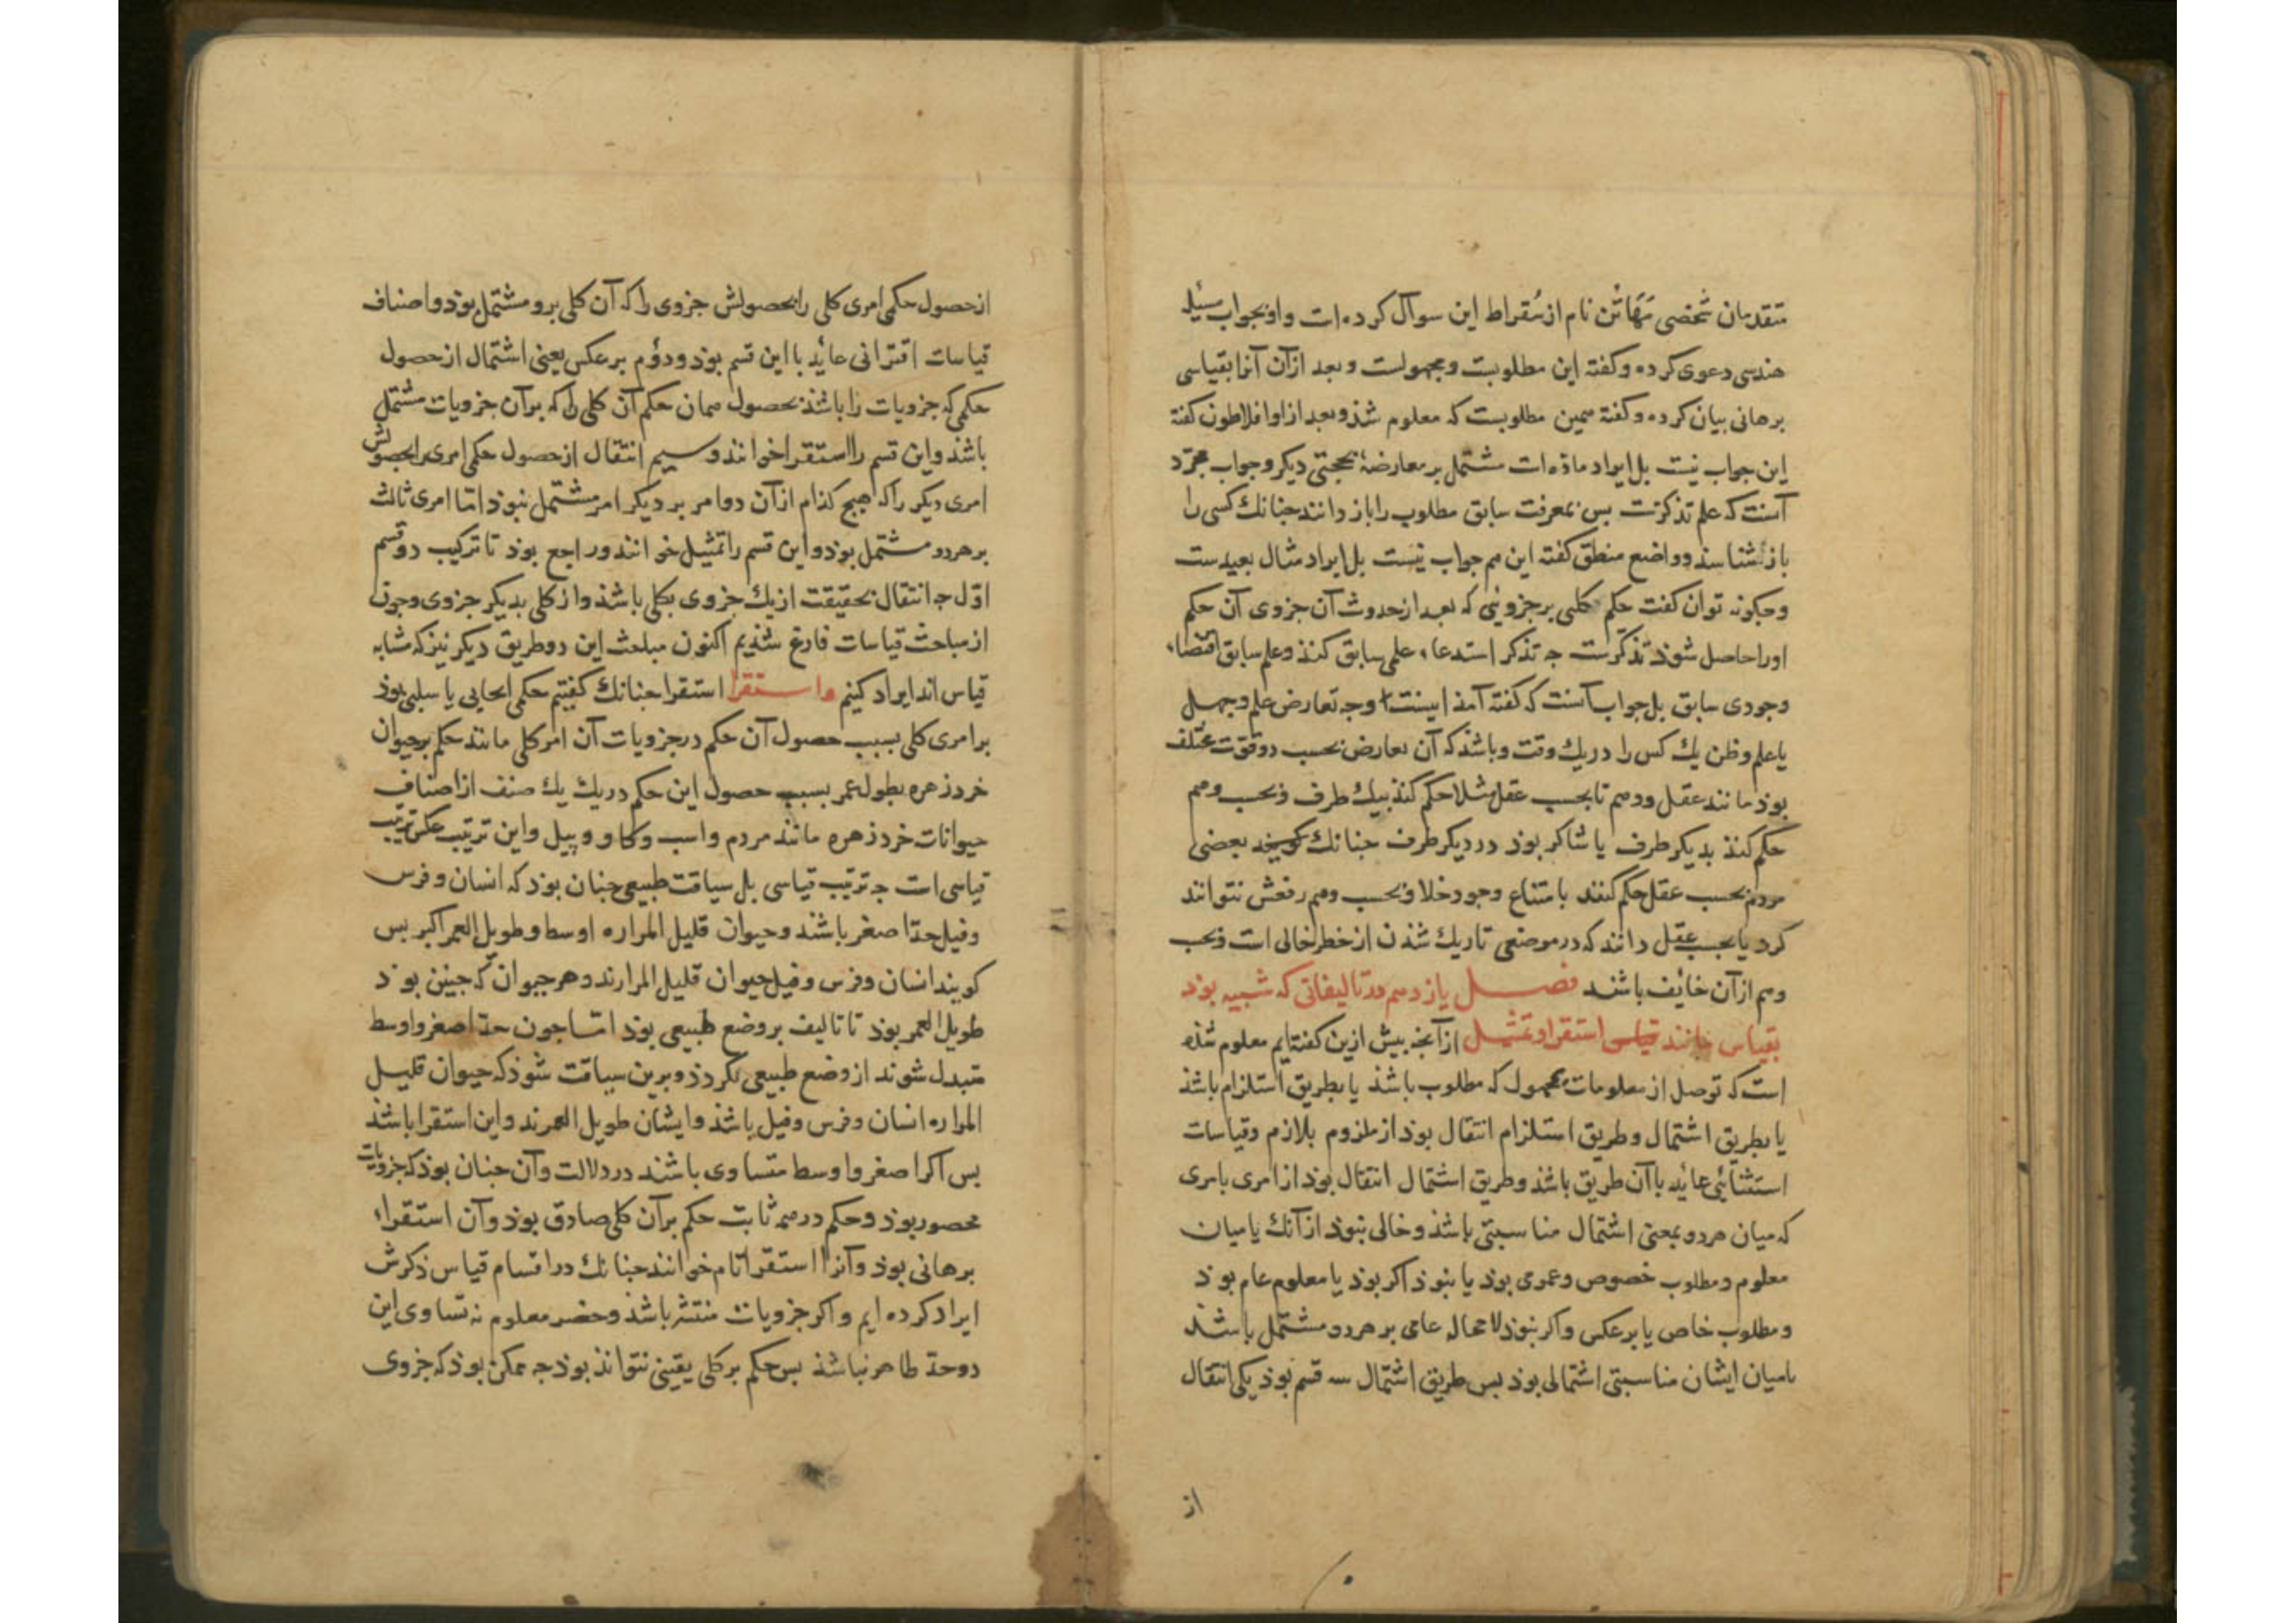 متقدمان شخصی مَهَانُن نام از سُقراط این سوآل کرده است و او بجواب مسئله
هندسی دعوی کرده و کفته این مطلوبست و مجهولست و بعد ازآن آنرا بقیاسی
برهانی بیان کرده و کفته همین مطلوبست که معلوم شذ و بعد ازاو افلاطون کفته
این جواب نیست بل ایراد ماده است مشتمل بر معارضهٔ بحجتی دیکر و جواب مجرّد
آنست که علم تذکرست بس بمعرفت سابق مطلوب را باز دانند جنانك کسی را
باز شناسند و واضع منطق کفته این هم جواب نیست بل ایراد مثال بعیدست
و جکونه توان کفت حکم کلی بر جزوئی که بعد از حدوث آن جزوی آن حکم
اورا حاصل شوذ تذکّرست جه تذکر استدعاء علمی سابق کند و علم سابق اقتضاء
وجودی سابق بل جواب آنست که کفته آمد اینست وجه تعارض علم و جهل
یا علم و ظن یك کس را در یك وقت و باشذ که آن تعارض بحسب دو قوّت مختلف
بوذ مانند عقل و وهم تا بحسب عقل مثلا حکم کنذ بیك طرف و بحسب وهم
حکم کنذ بدیکر طرف یا شاکر بوذ در دیکر طرف جنانك کویند بعضی
مردم بحسب عقل حکم کنند بامتناع وجود خلا و بحسب وهم رفعش نتوانند
کرد یا بحسب عقل دانند که در موضعی تاریك شذن از خطر خالی است و بحسب
وهم ازآن خائف باشند فصل یازدهم در تالیفاتی که شبیه بوذ
بقیاس مانند قیاس استقرا و تمثیل ازآنجه بیش ازین کفته ایم معلوم شذه
است که توصل از معلومات بمجهول که مطلوب باشذ یا بطریق استلزام باشذ
یا بطریق اشتمال و طریق استلزام انتقال بوذ از ملزوم بلازم و قیاسات
استثنائی عائد باآن طریق باشذ و طریق اشتمال انتقال بوذ از امری بامری
که میان هر دو بمعنی اشتمال مناسبتی باشذ و خالی نبوذ ازآنك یا میان
معلوم و مطلوب خصوص و عمومی بوذ یا نبوذ اکر بوذ یا معلوم عام بوذ
و مطلوب خاص یا برعکس و اکر نبوذ لا محاله عامی بر هر دو مشتمل باشذ
تا میان ایشان مناسبتی اشتمالی بوذ بس طریق اشتمال سه قسم بوذ یکی انتقال
از
از حصول حکمی امری کلی را بحصولش جزوی را که آن کلی برو مشتمل بوذ و اصناف
قیاسات اقترانی عاید با این قسم بوذ و دوّم برعکس یعنی اشتمال از حصول
حکمی که جزویات را باشذ بحصول همان حکم آن کلی را که برآن جزویات مشتمل
باشذ و این قسم را استقرا خوانند و سیم انتقال از حصول حکمی امری را بحصولش
امری دیکر را که هیج کذام ازآن دو امر بر دیکر امر مشتمل نبوذ امّا امری ثالث
بر هر دو مشتمل بوذ و این قسم را تمثیل خوانند و راجع بوذ تا ترکیب دو قسم
اوّل جه انتقال بحقیقت از یك جزوی بکلی باشذ و از کلی بدیکر جزوی و جون
از مباحث قیاسات فارغ شذیم اکنون مباحث این دو طریق دیکر نیز که مشابه
قیاس اند ایراد کنیم و استقرا استقرا جنانك کفتیم حکمی ایجابی یا سلبی بوذ
بر امری کلی بسبب حصول آن حکم در جزویات آن امر کلی مانند حکم بر حیوان
خرد زهره بطول عمر بسبب حصول این حکم در یك یك صنف از اصناف
حیوانات خرد زهره مانند مردم و اسب و کاو و پیل و این ترتیب عکس ترتیب
قیاسی است جه ترتیب قیاسی بل سیاقت طبیعی جنان بوذ که انسان و فرس
و فیل حدّ اصغر باشند و حیوان قلیل المراره اوسط و طویل العمر اکبر بس
کویند انسان و فرس و فیل حیوان قلیل المرارند و هر حیوان که جنین بوذ
طویل العمر بوذ تا تالیف بر وضع طبیعی بوذ امّا جون حدّ اصغر و اوسط
متبدل شوند از وضع طبیعی بکردذ و برین سیاقت شوذ که حیوان قلیل
المراره انسان و فرس و فیل باشذ و ایشان طویل العمرند و این استقرا باشذ
بس اکر اصغر و اوسط متساوی باشند در دلالت و آن جنان بوذ که جزویات
محصور بوذ و حکم در همه ثابت حکم برآن کلی صادق بوذ و آن استقراء
برهانی بوذ و آنرا استقرا تام خوانند جنانك در اقسام قیاس ذکرش
ایراد کرده ایم و اکر جزویات منتشر باشذ و حصر معلوم نه تساوی این
دو حدّ ظاهر نباشذ بس حکم بر کلی یقینی نتواند بوذ جه ممکن بوذ که جزوی